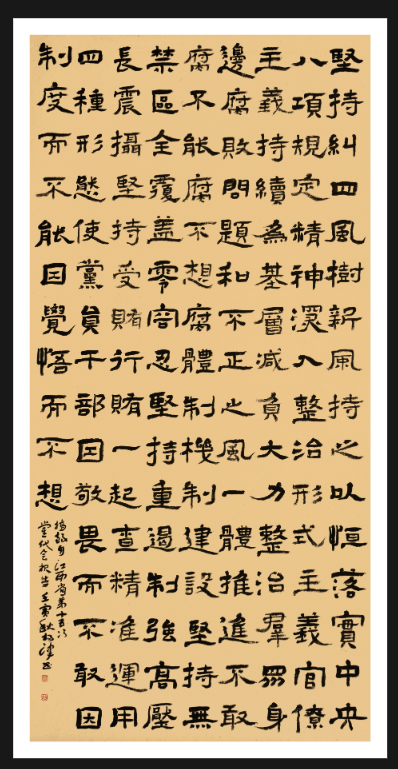 堅持糾四風樹新風持之以恒落實中央
八項規定精神深入整治形式主義官僚
主義持續為基層減負大力整治群眾身
邊腐敗問題和不正之風一體推進不敢
腐不能腐不想腐體制機制建設堅持無
禁區全覆盖零容忍堅持重遏制強高壓
長震攝堅持受賄行賄一起查精准運用
四種形態使黨員干部因敬畏而不敢因
制度而不能因覺悟而不想
摘錄自江西省第十五次
黨代会報告壬寅